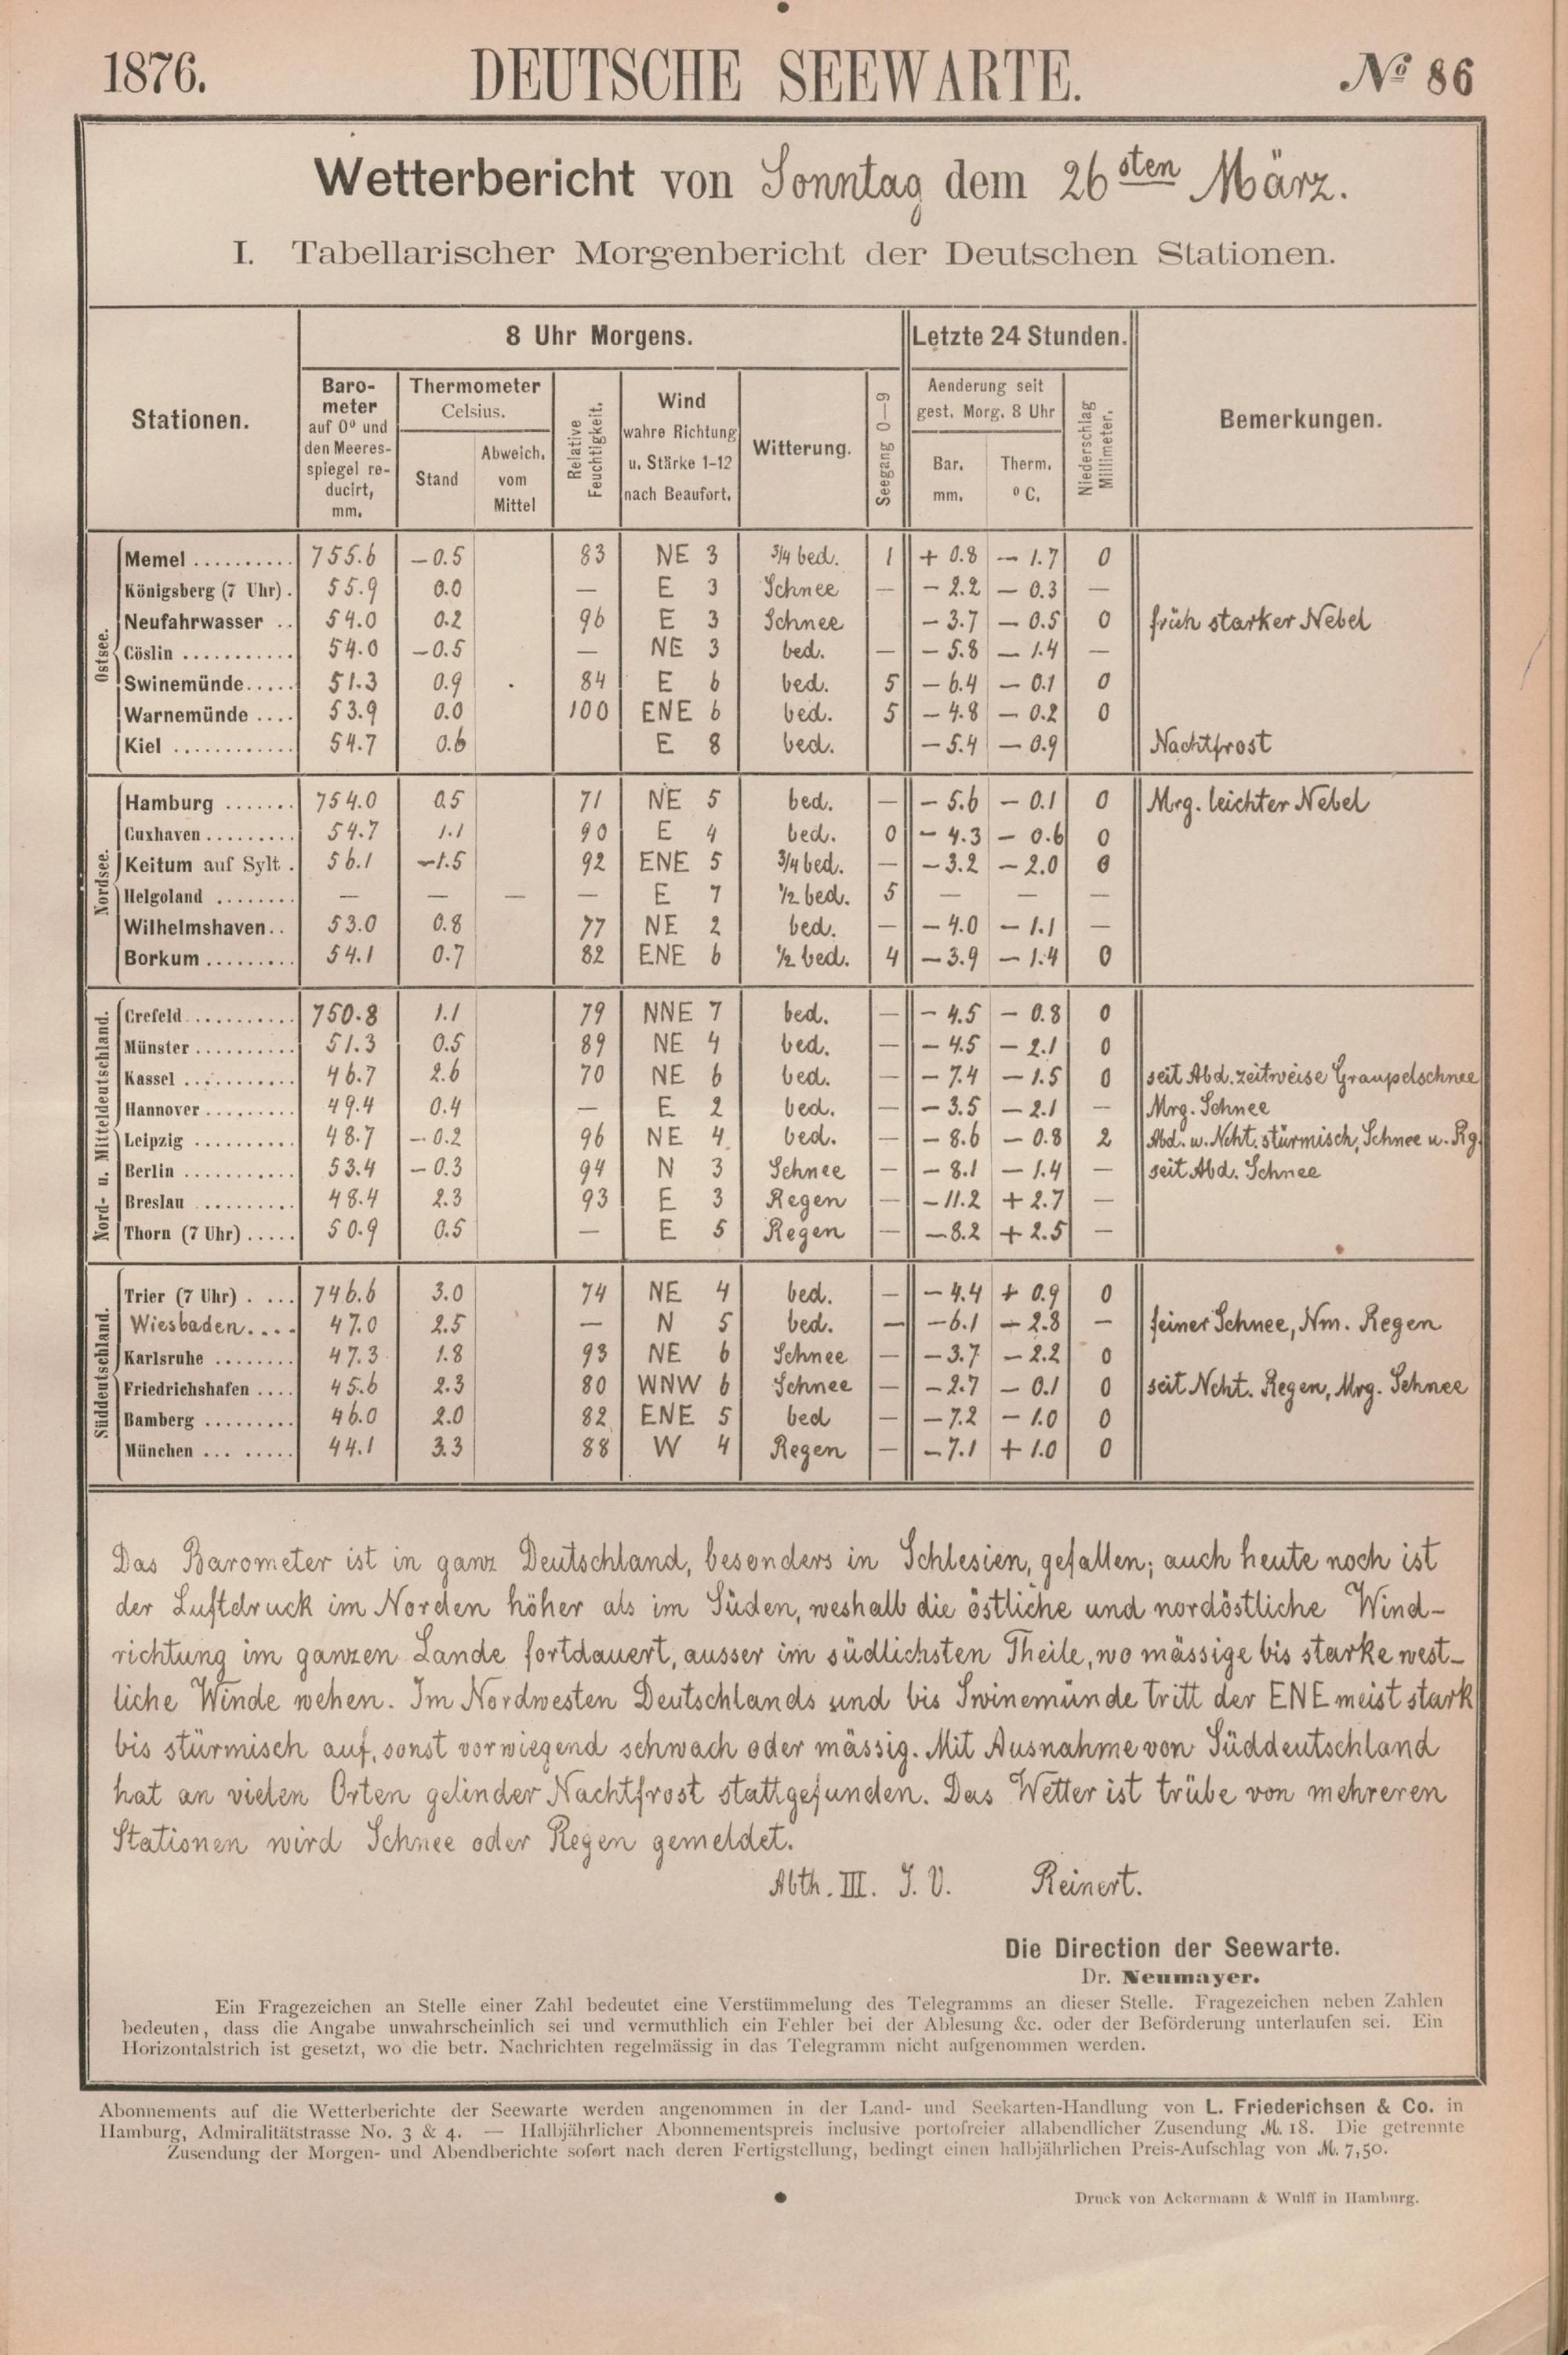 1876. DEUTSCHE SEEWARTE. No 86
Wetterbericht von Sonntag dem 26sten März.
I. Tabellarischer Morgenbericht der Deutschen Stationen.
Stationen. 8 Uhr Morgens. Letzte 24 Stunden. Bemerkungen.
Barometer auf 0° und den Meeresspiegel reducirt, mm. Thermometer Celsius. Stand Abweich. vom Mittel Relative Feuchtigkeit. Wind wahre Richtung u. Stärke 1-12 nach Beaufort. Witterung. Seegang 0—9 Aenderung seit gest. Morg. 8 Uhr Bar. mm. Therm. °C. Niederschlag Millimeter.
Ostsee.
Memel .......... 755.6 −0.5 83 NE 3 3/4 bed. 1 + 0.8 − 1.7 0
Königsberg (7 Uhr) . 55.9 0.0 — E 3 Schnee — − 2.2 − 0.3 —
Neufahrwasser .. 54.0 0.2 96 E 3 Schnee − 3.7 − 0.5 0 früh starker Nebel
Cöslin ........... 54.0 −0.5 — NE 3 bed. — − 5.8 − 1.4 —
Swinemünde..... 51.3 0.9 84 E 6 bed. 5 − 6.4 − 0.1 0
Warnemünde .... 53.9 0.0 100 ENE 6 bed. 5 − 4.8 − 0.2 0
Kiel ............ 54.7 0.6 E 8 bed. − 5.4 − 0.9 Nachtfrost
Nordsee.
Hamburg ....... 754.0 0.5 71 NE 5 bed. — − 5.6 − 0.1 0 Mrg. leichter Nebel
Cuxhaven ......... 54.7 1.1 90 E 4 bed. 0 − 4.3 − 0.6 0
Keitum auf Sylt . 56.1 −1.5 92 ENE 5 3/4 bed. — − 3.2 − 2.0 0
Helgoland ........ — — — — E 7 1/2 bed. 5 — — —
Wilhelmshaven.. 53.0 0.8 77 NE 2 bed. — − 4.0 − 1.1 —
Borkum ......... 54.1 0.7 82 ENE 6 1/2 bed. 4 − 3.9 − 1.4 0
Nord- u. Mitteldeutschland.
Crefeld........... 750.8 1.1 79 NNE 7 bed. — − 4.5 − 0.8 0
Münster .......... 51.3 0.5 89 NE 4 bed. — − 4.5 − 2.1 0
Kassel ........... 46.7 2.6 70 NE 6 bed. — − 7.4 − 1.5 0 seit Abd. zeitweise Graupelschnee
Hannover ......... 49.4 0.4 — E 2 bed. — − 3.5 − 2.1 — Mrg. Schnee
Leipzig .......... 48.7 −0.2 96 NE 4 bed. — − 8.6 − 0.8 2 Abd. u. Ncht. stürmisch, Schnee u. Rg.
Berlin ........... 53.4 −0.3 94 N 3 Schnee — − 8.1 − 1.4 — seit Abd. Schnee
Breslau .......... 48.4 2.3 93 E 3 Regen — −11.2 + 2.7 —
Thorn (7 Uhr) ..... 50.9 0.5 — E 5 Regen — −8.2 + 2.5 —
Süddeutschland.
Trier (7 Uhr) . ... 746.6 3.0 74 NE 4 bed. — − 4.4 + 0.9 0
Wiesbaden.... 47.0 2.5 — N 5 bed. — −6.1 − 2.8 — feiner Schnee, Nm. Regen
Karlsruhe ........ 47.3 1.8 93 NE 6 Schnee — −3.7 − 2.2 0
Friedrichshafen .... 45.6 2.3 80 WNW 6 Schnee — −2.7 − 0.1 0 seit Ncht. Regen, Mrg. Schnee
Bamberg ......... 46.0 2.0 82 ENE 5 bed — −7.2 − 1.0 0
München ... ..... 44.1 3.3 88 W 4 Regen — −7.1 + 1.0 0
Das Barometer ist in ganz Deutschland, besonders in Schlesien, gefallen; auch heute noch ist
der Luftdruck im Norden höher als im Süden, weshalb die östliche und nordöstliche Wind-
richtung im ganzen Lande fortdauert, ausser im südlichsten Theile, wo mässige bis starke west-
liche Winde wehen. Im Nordwesten Deutschlands und bis Swinemünde tritt der ENE meist stark
bis stürmisch auf, sonst vorwiegend schwach oder mässig. Mit Ausnahme von Süddeutschland
hat an vielen Orten gelinder Nachtfrost stattgefunden. Das Wetter ist trübe von mehreren
Stationen wird Schnee oder Regen gemeldet.
Abth. III. I. V. Reinert.
Die Direction der Seewarte.
Dr. Neumayer.
Ein Fragezeichen an Stelle einer Zahl bedeutet eine Verstümmelung des Telegramms an dieser Stelle. Fragezeichen neben Zahlen
bedeuten, dass die Angabe unwahrscheinlich sei und vermuthlich ein Fehler bei der Ablesung &c. oder der Beförderung unterlaufen sei. Ein
Horizontalstrich ist gesetzt, wo die betr. Nachrichten regelmässig in das Telegramm nicht aufgenommen werden.
Abonnements auf die Wetterberichte der Seewarte werden angenommen in der Land- und Seekarten-Handlung von L. Friederichsen & Co. in
Hamburg, Admiralitätstrasse No. 3 & 4. — Halbjährlicher Abonnementspreis inclusive portofreier allabendlicher Zusendung M. 18. Die getrennte
Zusendung der Morgen- und Abendberichte sofort nach deren Fertigstellung, bedingt einen halbjährlichen Preis-Aufschlag von M. 7,50.
Druck von Ackermann & Wulff in Hamburg.